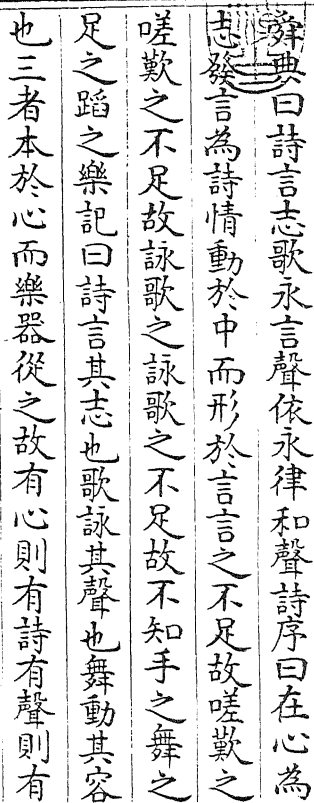 舜典曰詩言志歌永言聲依永律和聲詩序曰在心為
志發言為詩情動於中而形於言言之不足故嗟歎之
嗟歎之不足故詠歌之詠歌之不足故不知手之舞之
足之蹈之樂記曰詩言其志也歌詠其聲也舞動其容
也三者本於心而樂器從之故有心則有詩有聲則有